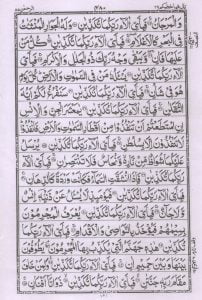 قال فما خطبكم ٢٧ ۴۸۰ الرحمن ۵۵
وَالْمَرْجَانُ ۚ فَبِاَيِّ اٰلَاۤءِ رَبِّكُمَا تُكَذِّبٰنِ وَلَهُ الْجَوَارِ الْمُنْشَـٰٔتُ
فِي الْبَحْرِ كَالْاَعْلَامِ ۚ فَبِاَيِّ اٰلَاۤءِ رَبِّكُمَا تُكَذِّبٰنِ كُلُّ مَنْ
عَلَيْهَا فَانٍ ۚ وَّيَبْقٰى وَجْهُ رَبِّكَ ذُو الْجَلٰلِ وَالْاِكْرَامِ ۚ فَبِاَيِّ
اٰلَاۤءِ رَبِّكُمَا تُكَذِّبٰنِ يَسْـَٔلُهٗ مَنْ فِي السَّمٰوٰتِ وَالْاَرْضِ كُلَّ يَوْمٍ
هُوَ فِيْ شَاْنٍ ۚ فَبِاَيِّ اٰلَاۤءِ رَبِّكُمَا تُكَذِّبٰنِ سَنَفْرُغُ لَكُمْ اَيُّهَ
الثَّقَلٰنِ ۚ فَبِاَيِّ اٰلَاۤءِ رَبِّكُمَا تُكَذِّبٰنِ يٰمَعْشَرَ الْجِنِّ وَالْاِنْسِ
اِنِ اسْتَطَعْتُمْ اَنْ تَنْفُذُوْا مِنْ اَقْطَارِ السَّمٰوٰتِ وَالْاَرْضِ فَانْفُذُوْا
لَا تَنْفُذُوْنَ اِلَّا بِسُلْطٰنٍ ۚ فَبِاَيِّ اٰلَاۤءِ رَبِّكُمَا تُكَذِّبٰنِ يُرْسَلُ
عَلَيْكُمَا شُوَاظٌ مِّنْ نَّارٍ وَّنُحَاسٌ فَلَا تَنْتَصِرٰنِ ۚ فَبِاَيِّ اٰلَاۤءِ
رَبِّكُمَا تُكَذِّبٰنِ فَاِذَا انْشَقَّتِ السَّمَاۤءُ فَكَانَتْ وَرْدَةً كَالدِّهَانِ ۚ
فَبِاَيِّ اٰلَاۤءِ رَبِّكُمَا تُكَذِّبٰنِ فَيَوْمَئِذٍ لَّا يُسْـَٔلُ عَنْ ذَنْۢبِهٖٓ اِنْسٌ
وَّلَا جَاۤنٌّ ۚ فَبِاَيِّ اٰلَاۤءِ رَبِّكُمَا تُكَذِّبٰنِ يُعْرَفُ الْمُجْرِمُوْنَ
بِسِيْمٰهُمْ فَيُؤْخَذُ بِالنَّوَاصِيْ وَالْاَقْدَامِ ۚ فَبِاَيِّ اٰلَاۤءِ رَبِّكُمَا
تُكَذِّبٰنِ هٰذِهٖ جَهَنَّمُ الَّتِيْ يُكَذِّبُ بِهَا الْمُجْرِمُوْنَ ۘ يَطُوْفُوْنَ
بَيْنَهَا وَبَيْنَ حَمِيْمٍ اٰنٍ ۚ فَبِاَيِّ اٰلَاۤءِ رَبِّكُمَا تُكَذِّبٰنِ وَلِمَنْ خَافَ
مَقَامَ رَبِّهٖ جَنَّتٰنِ ۚ فَبِاَيِّ اٰلَاۤءِ رَبِّكُمَا تُكَذِّبٰنِ ذَوَاتَآ اَفْنَانٍ ۚ